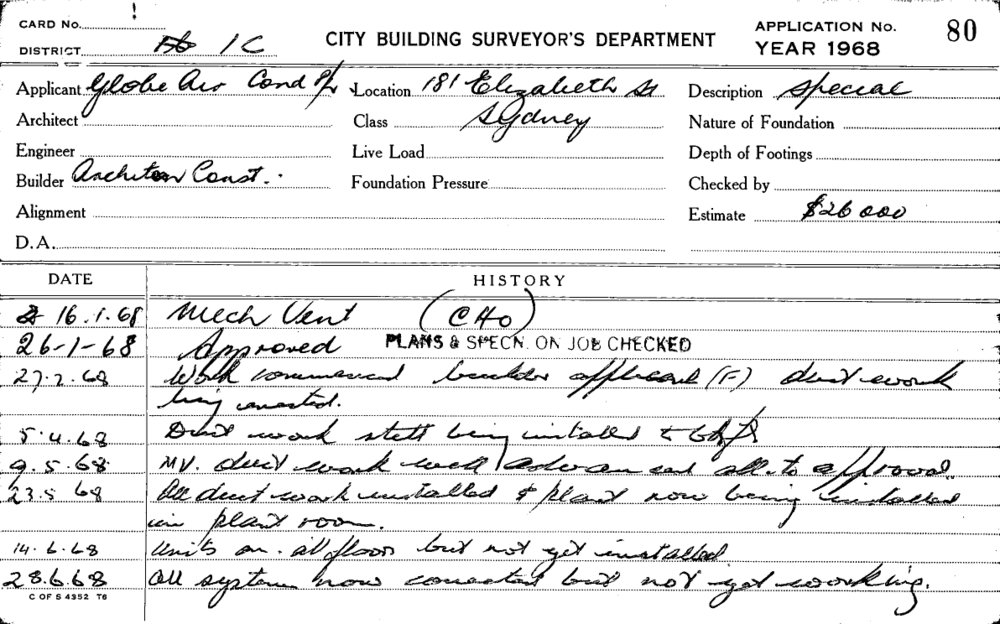 CARD No.
DISTRICT 1C
CITY BUILDING SURVEYOR'S DEPARTMENT
APPLICATION No. 80
YEAR 1968
Applicant Globe Air Cond P/L
Location 181 Elizabeth St
Description Special
Architect
Class Sydney
Nature of Foundation
Engineer
Live Load
Depth of Footings
Builder Const.
Foundation Pressure
Checked by
Alignment
Estimate $26 000
D.A.
DATE HISTORY
16.1.68 Mech Vent (CHO)
26-1-68 Approved PLANS & SPECN. ON JOB CHECKED
27.2.68 Work commenced builder applicant (F) duct work
being erected.
5.4.68 Duct work still being installed
9.5.68 MV. duct work well advanced all to approval
23.5 68 All duct work installed & plant now being installed
in plant room.
14.6.68 Units on all floors but not yet installed
28.6.68 All system now connected but not yet working.
C OF S 4352 T6